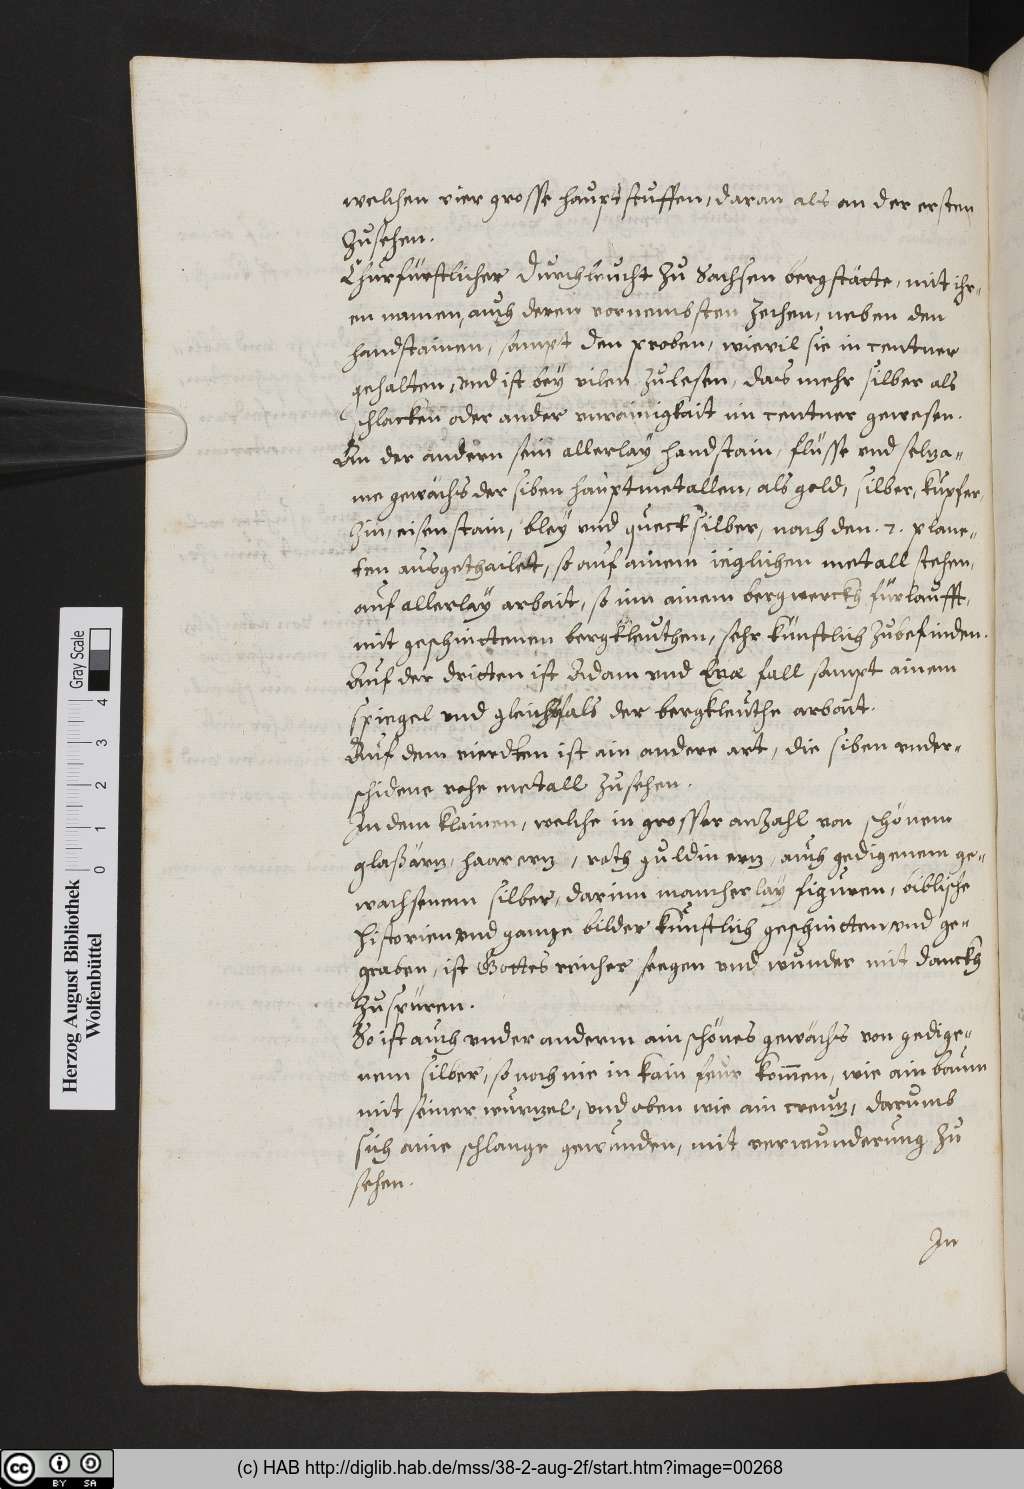 welchen vier grosse hauptstuffen, daran als an der ersten
zusehen.
Churfürstlicher Durchleucht zu Sachsen bergstätte, mit ihr-
en namen, auch deren vornembsten zechen, neben den
handstainen, sampt den proben, wievil sie in centner
gehalten, vnd ist bey vilen zulesen, das mehr silber als
schlacken oder ander vnreinigkait im centner gewesen.
An der andern sein allerlay handstain, flüsse vnd selza-
me gewächs der siben hauptmetallen, als gold, silber, kupfer,
zin, eisenstain, bley vnd quecksilber, nach den .7. plane-
ten ausgethailet, so auf ainem ieglichen metall stehen,
auf allerlay arbait, so inn ainem bergwerckh fürlaufft,
mit geschnittenen bergkleuthen, sehr künstlich zubefinden.
Auf der dritten ist Adam vnd Evæ fall sampt ainem
spiegel vnd gleichsfals der bergkleuthe arbait.
Auf dem vierdten ist ain andere art, die siben vnder-
schidene rohe metall zusehen.
In dem klainen, welche in grosser anzahl von schönem
glaßärtz, haar ertz, roth guldin ertz, auch gedigenem ge-
wachsenem silber, darinn mancherlay figuren, biblische
historien vnd gantze bilder künstlich geschnitten vnd ge-
graben, ist Gottes reicher seegen vnd wunder mit danckh
zuspüren.
So ist auch vnder anderm ain schönes gewächs von gedige-
nem silber, so noch nie in kain feur kommen, wie ain baum
mit seiner wurtzel, vnd oben wie ain creutz, darumb
sich aine schlange gewunden, mit verwunderung zu
sehen.
In
Herzog August Bibliothek
Wolfenbüttel
Gray Scale
0 1 2 3 4
(c) HAB http://diglib.hab.de/mss/38-2-aug-2f/start.htm?image=00268
cc BY SA